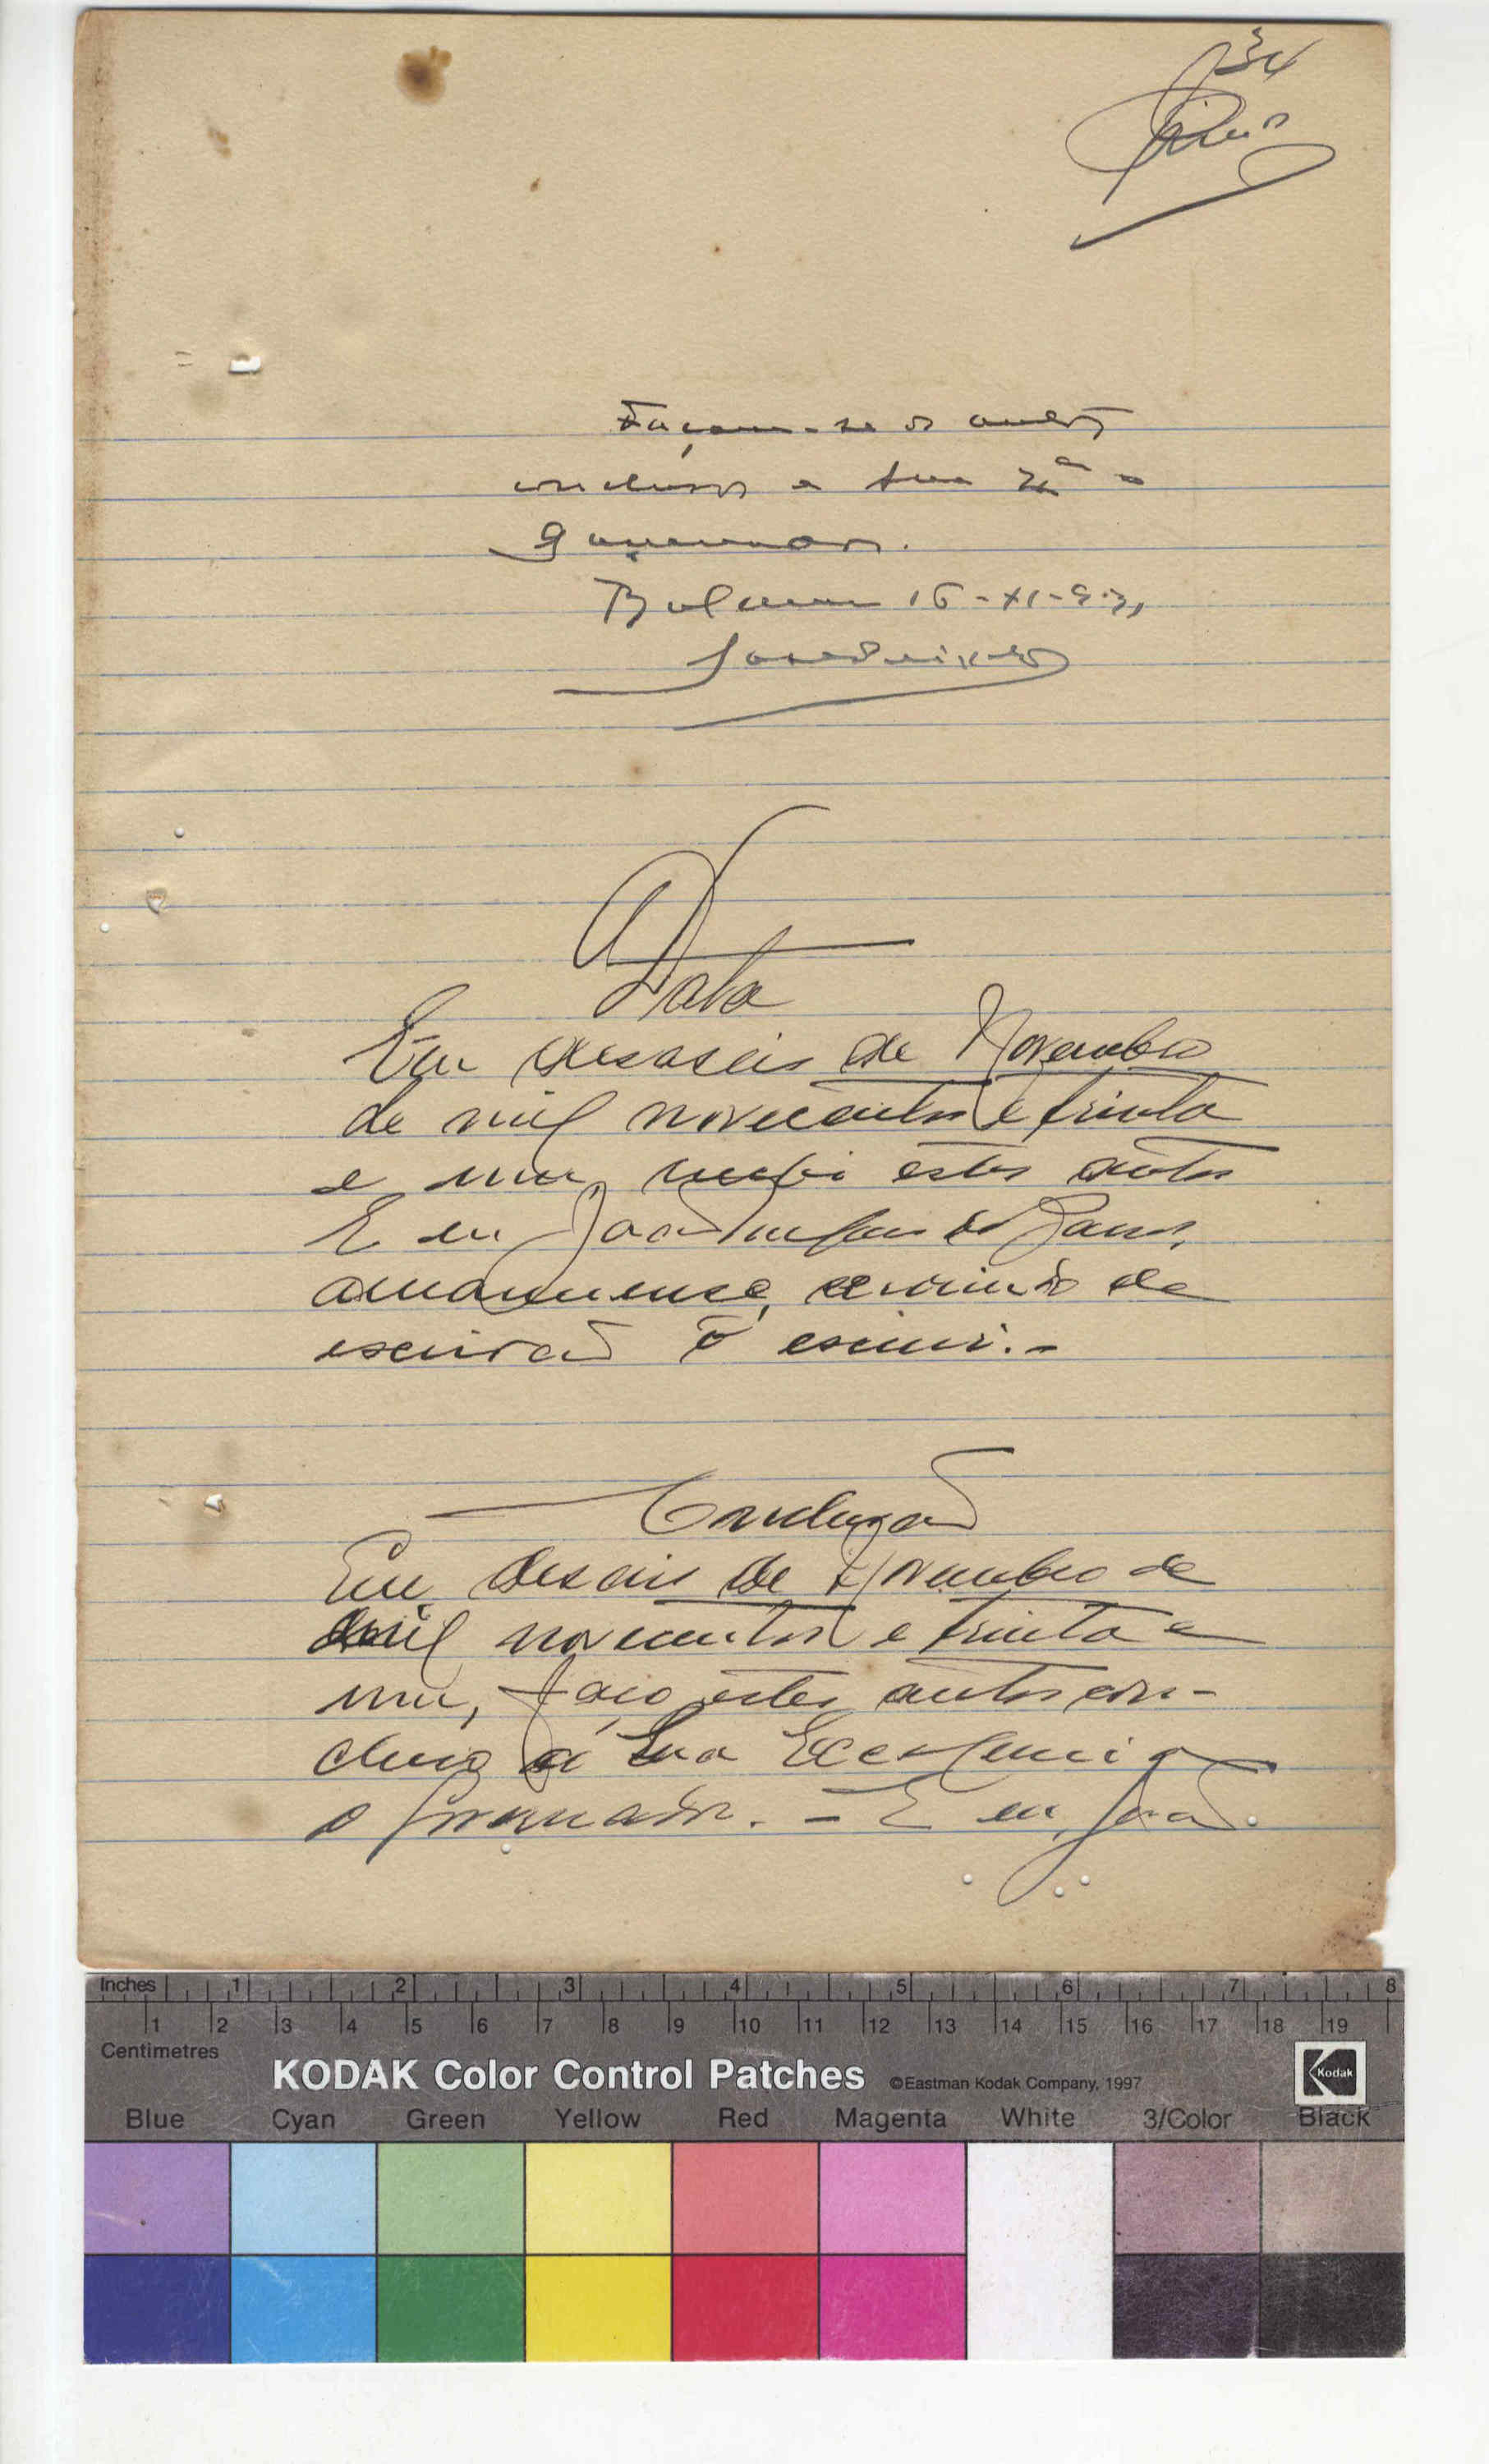 34
Façam-se os autos
conclusos a Sua Exª o
Governador.
Bolama 16-XI-931
Data
Em desaseis de Novembro
de mil novecentos e trinta
e um, recebi estes autos
E eu João
amanuense, servindo de
escrivão o escrevi.-
Conclusão
Em deseseis de Novembro de
mil novecentos e trinta e
um, faço estes autos con-
clusos a Sua Excelencia
o Governador. - E eu, João
Inches 1 2 3 4 5 6 7 8
1 2 3 4 5 6 7 8 9 10 11 12 13 14 15 16 17 18 19
Centimetres
KODAK Color Control Patches ©Eastman Kodak Company, 1997 Kodak
Blue Cyan Green Yellow Red Magenta White 3/Color Black